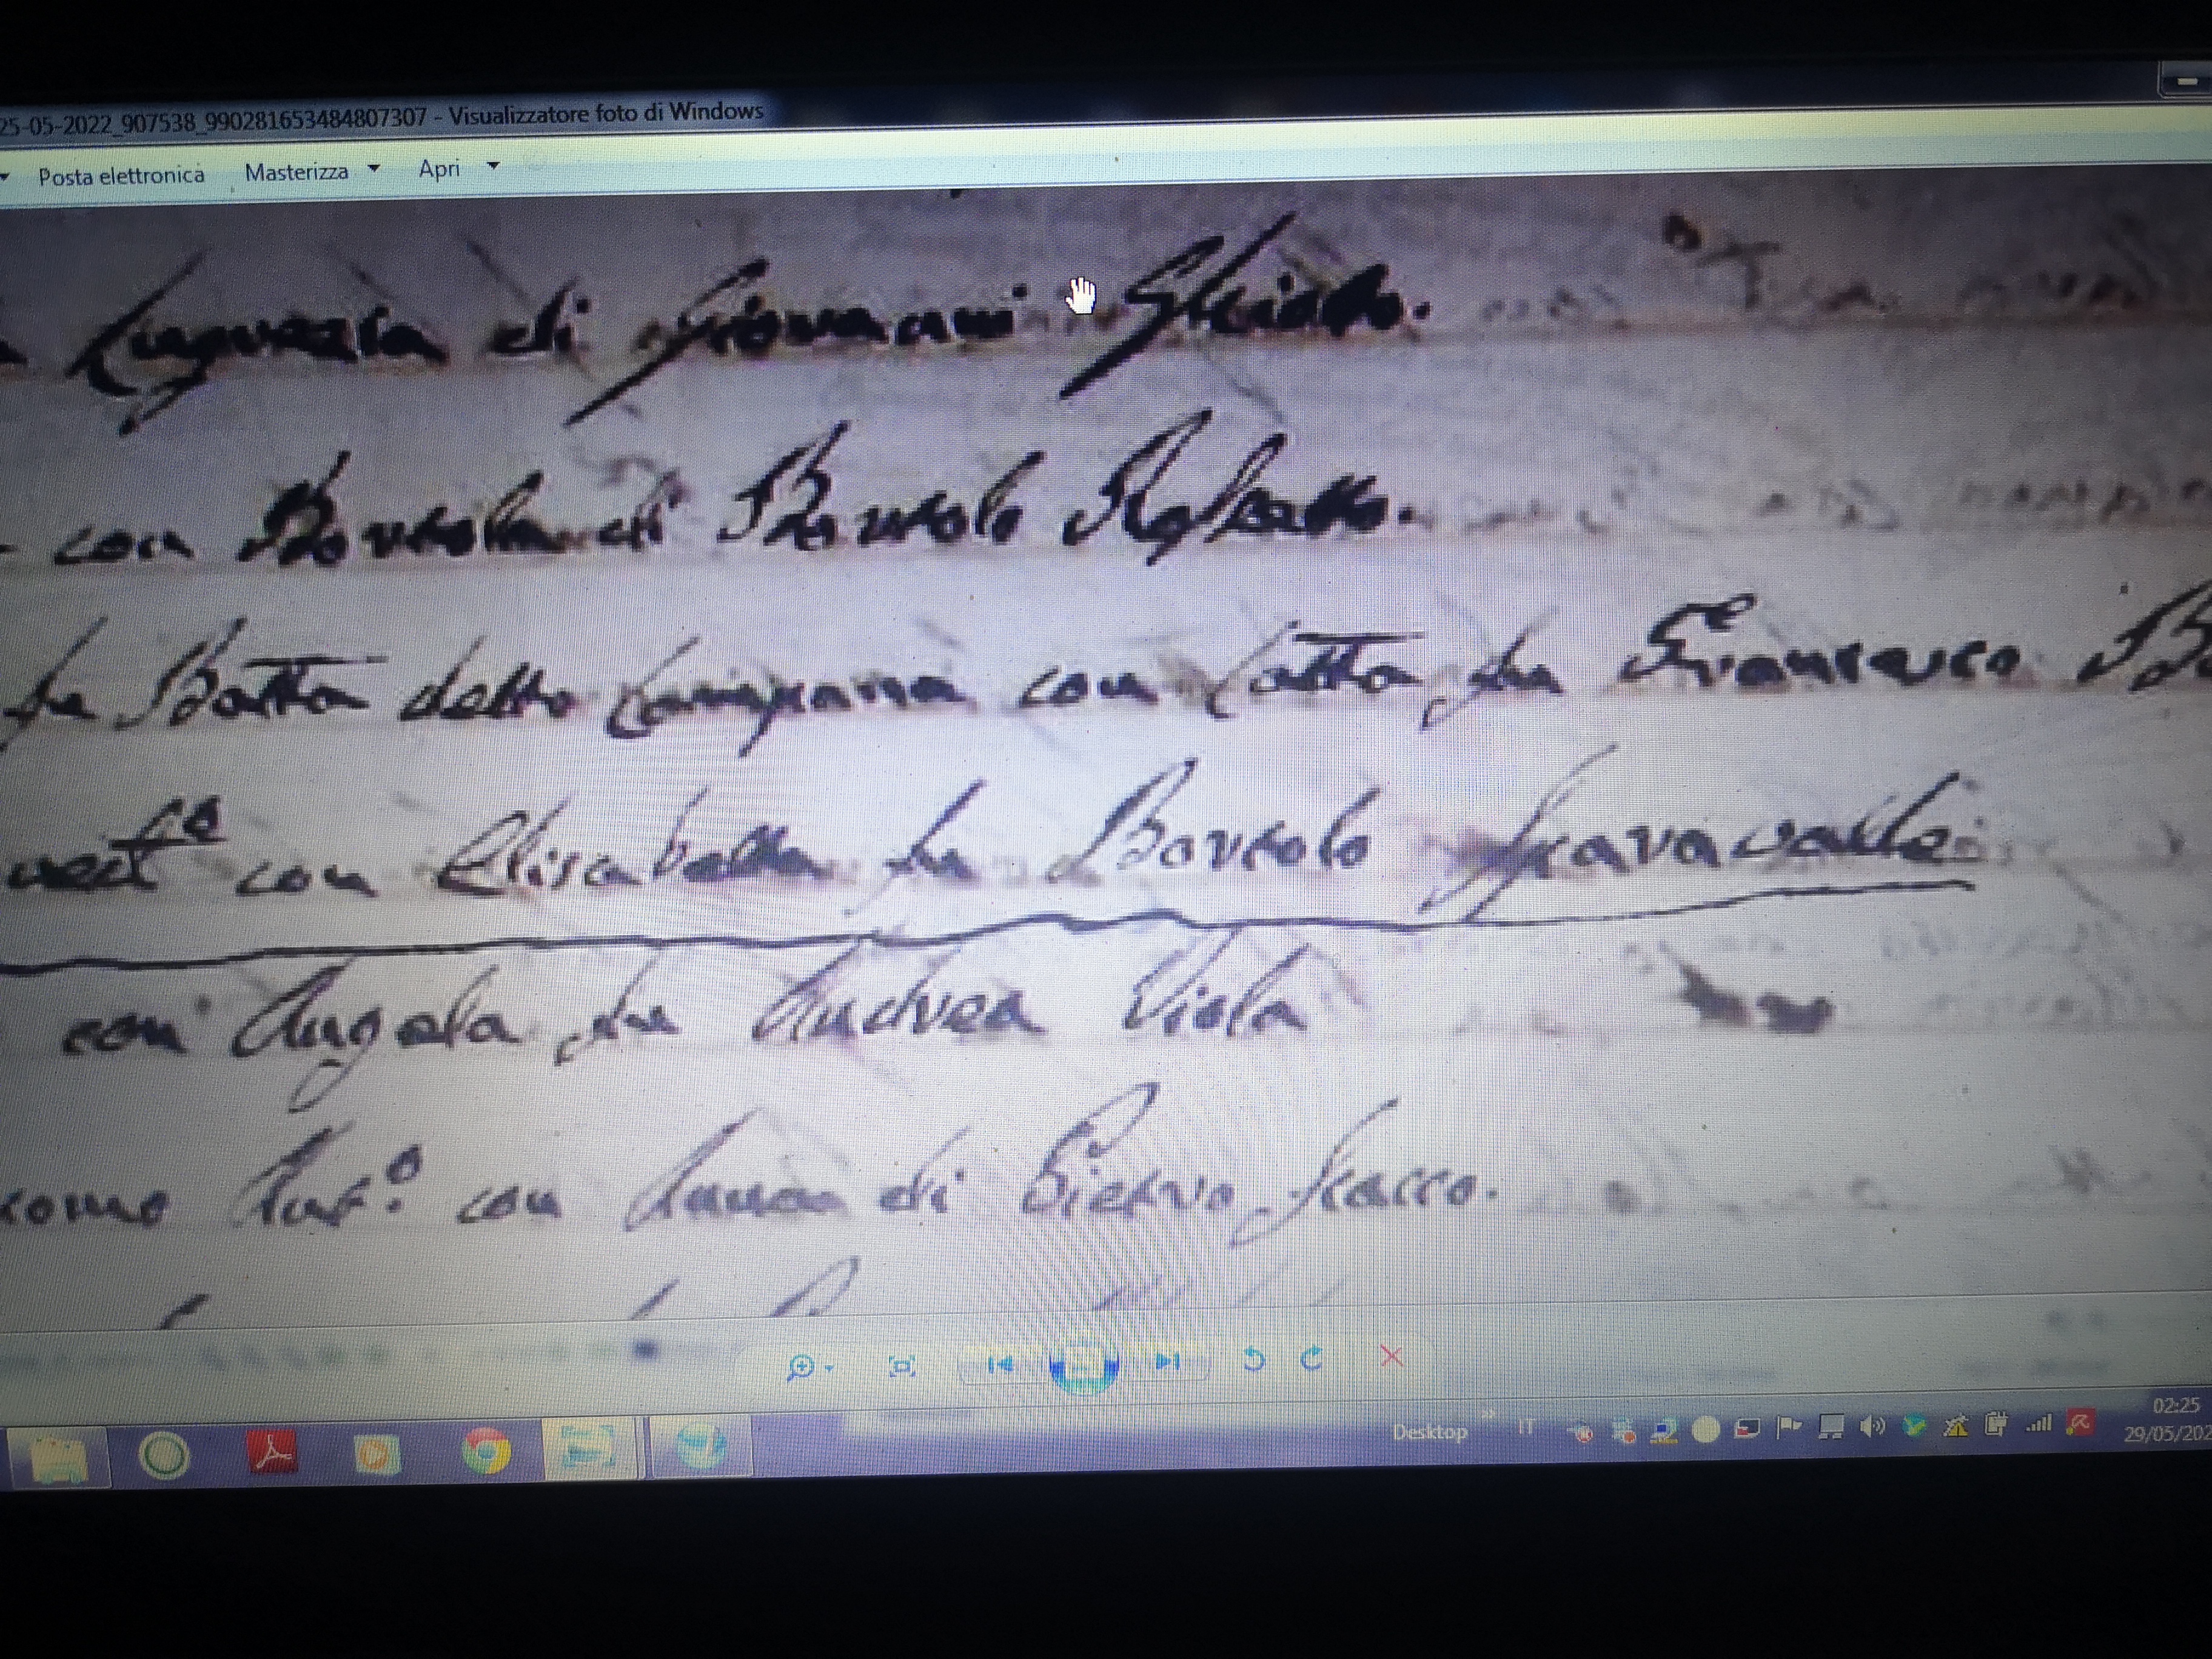 25-05-2022_907538_990281653484807307 - Visualizzatore foto di Windows
Posta elettronica Masterizza Apri
di Giovanni
con Bortola di Bortolo
fu Batta detto Campana con Catta fu Francesco
con Elisabetta fu Bortolo
con Angela fu Andrea Viola
como Ant.o con Anna di Pietro Scacco.
Desktop IT 02:25
29/05/202